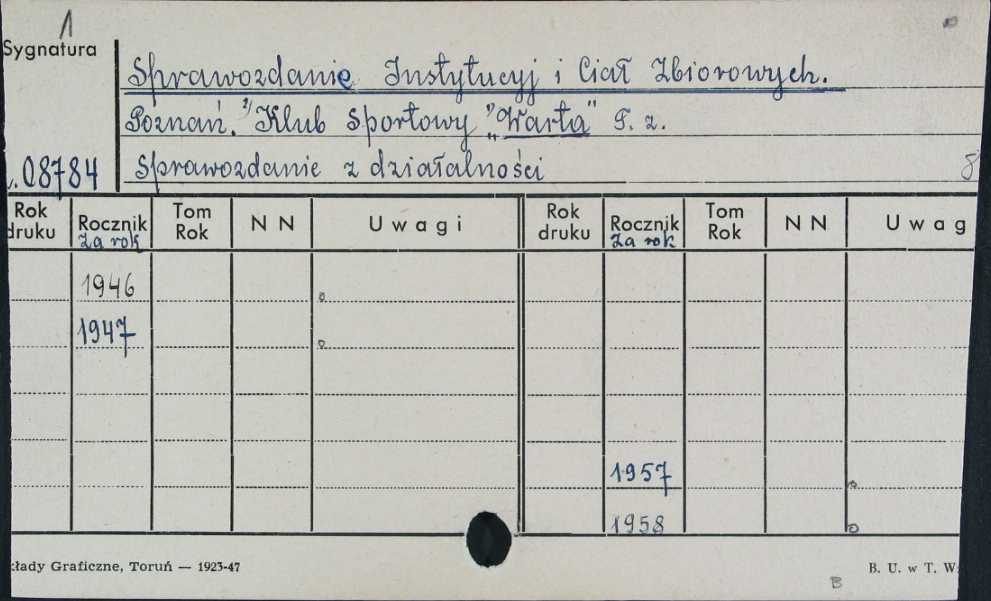 1
Sygnatura
Sprawozdanię Instytucyj i Ciał Zbiorowych.
Poznań. Klub Sportowy „Warta" T. z.
08784 Sprawozdanie z działalności 8
Rok druku Rocznik Tom Rok N N Uwagi Rok druku Rocznik Tom Rok N N Uwag
za rok za rok
1946
1947
1957
1958
kłady Graficzne, Toruń — 1923-47 B. U. w T. W
B